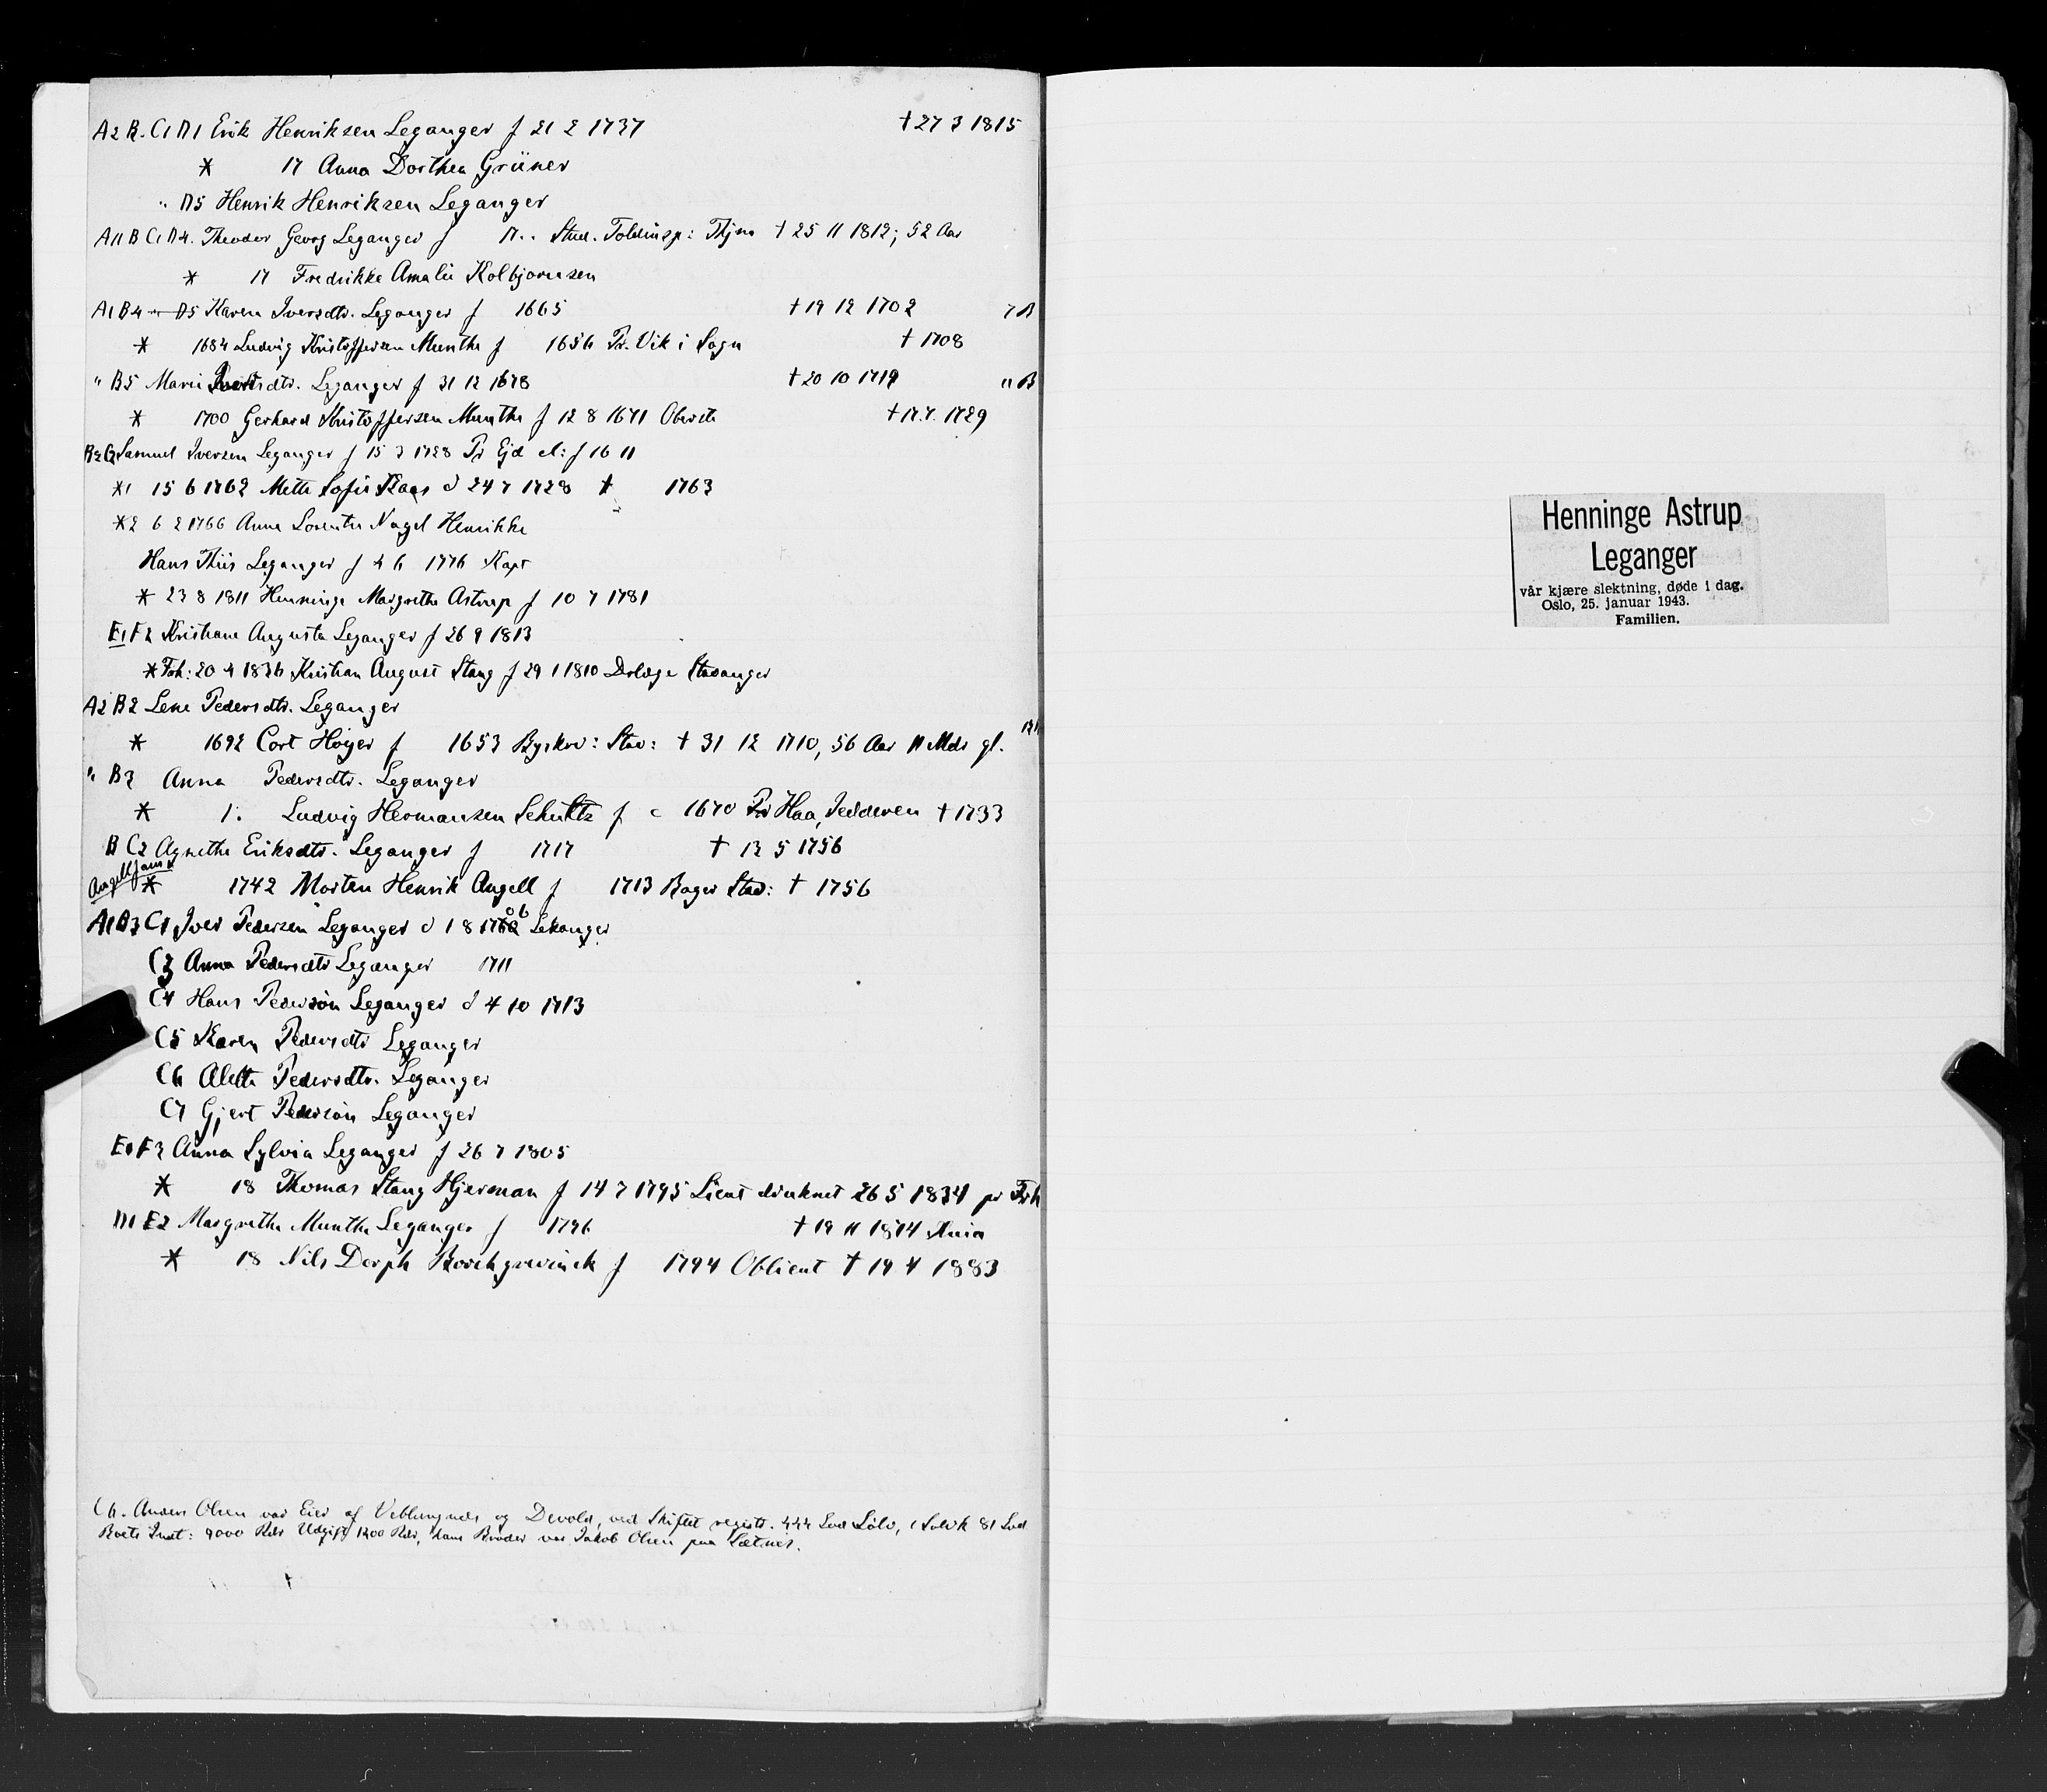 A2 B. C1 D1 Erik Henriksen Leganger f 21 2 1737 † 27 3 1815
* 17 Anna Dorthea Grüner
" D5 Henrik Henriksen Leganger
A11 B C1 D4. Theodor Georg Leganger f 17.. Stud. Toldinsp: Thjm † 25 11 1812; 52 Aar
* 17 Fredrikke Amalie Kolbjørnsen
A1 B4 D5 Karen Iversdtr. Leganger f 1665 † 19 12 1702 7 B
* 1684 Ludvig Kristoffersen Munthe f 1656 Pr. Vik i Sogn † 1708
" B5 Marie Iversdtr. Leganger f 31 12 1678 † 20 10 1719 11 B
* 1700 Gerhard Kristoffersen Munthe f 12 8 1671 Oberstl † 17.7. 1729
Samuel Iversen Leganger f 15 3 1728 Pr Ejd el: f 16 11
*1 15 6 1762 Mette Sofie Kaas d 24 7 1728 † 1763
*2 6 2 1766 Anna Lorentse Nagel Henrikke
Hans Thiis Leganger f 4 6 1776 Kapt
* 23 8 1811 Henninge Margrethe Astrup f 10 7 1781
E1 F2 Kristiane Augusta Leganger f 26 9 1813
* Frh: 20 4 1836 Kristian August Stang f 29 1 1810 Drlæge Stavanger
A2 B2 Lene Pedersdtr. Leganger
* 1692 Cort Høyer f 1653 Byskr: Stav: † 31 12 1710, 56 Aar 11 Mdr gl.
" B3 Anna Pedersdtr. Leganger
* 1. Ludvig Hermansen Schultz f c 1670 Pr Haa, Jedderen † 1733
B C2 Agnethe Eriksdtr. Leganger f 1717 † 12 5 1756
Angell
* 1742 Morten Henrik Angell f 1713 Bager Stav: † 1756
A1 B3 C1 Iver Pedersen Leganger d 1 8 1706 Lekanger
C3 Anna Pedersdtr Leganger 1711
C4 Hans Pedersøn Leganger d 4 10 1713
C5 Karen Pedersdtr Leganger
C6 Alette Pedersdtr. Leganger
C7 Gjert Pedersøn Leganger
E1 F3 Anna Sylvia Leganger f 26 7 1805
* 18 Thomas Stang Hjerman f 14 7 1795 Lieut druknet 26 5 1834 pr Frh
D1 E2 Margrethe Munthe Leganger f 1796 † 19 11 1874 Knia
* 18 Nils Dorph Borchgrevinck f 1794 Oblieut † 19 4 1883
C6. Anders Olsen var Eier af Veblungnæs og Devold, ved Skiftet registr. 444 Lod Sølv, 81 Lod
Boets Indt: 9000 Rdr Udgift 1200 Rdr, hans Broder var Jakob Olsen paa Sætnes.
Henninge Astrup
Leganger
vår kjære slektning, døde i dag.
Oslo, 25. januar 1943.
Familien.